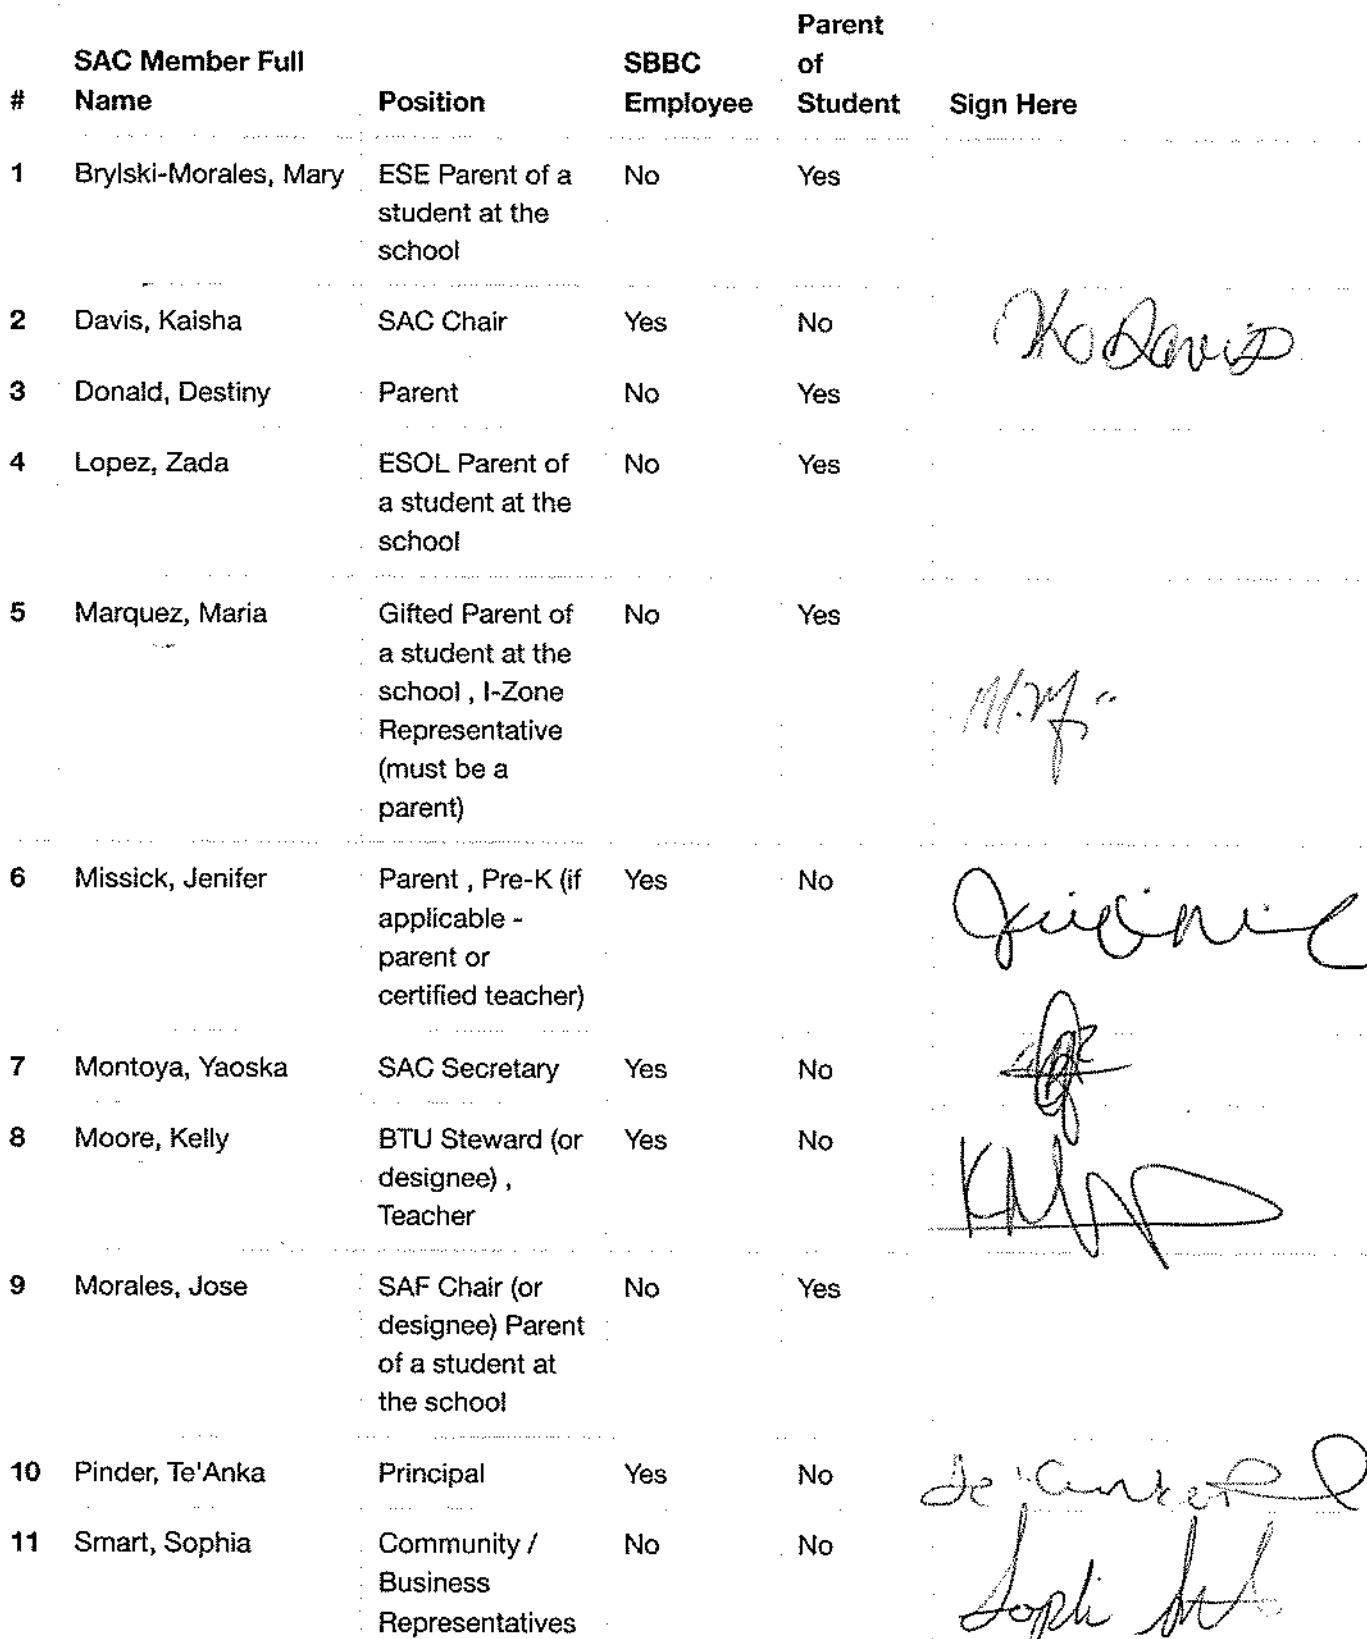 Parent
SAC Member Full SBBC of
# Name Position Employee Student Sign Here
1 Brylski-Morales, Mary ESE Parent of a No Yes
student at the
school
2 Davis, Kaisha SAC Chair Yes No K Davis
3 Donald, Destiny Parent No Yes
4 Lopez, Zada ESOL Parent of No Yes
a student at the
school
5 Marquez, Maria Gifted Parent of No Yes
a student at the
school , I-Zone
Representative
(must be a
parent)
6 Missick, Jenifer Parent , Pre-K (if Yes No
applicable -
parent or
certified teacher)
7 Montoya, Yaoska SAC Secretary Yes No
8 Moore, Kelly BTU Steward (or Yes No
designee) ,
Teacher
9 Morales, Jose SAF Chair (or No Yes
designee) Parent
of a student at
the school
10 Pinder, Te'Anka Principal Yes No
11 Smart, Sophia Community / No No
Business
Representatives